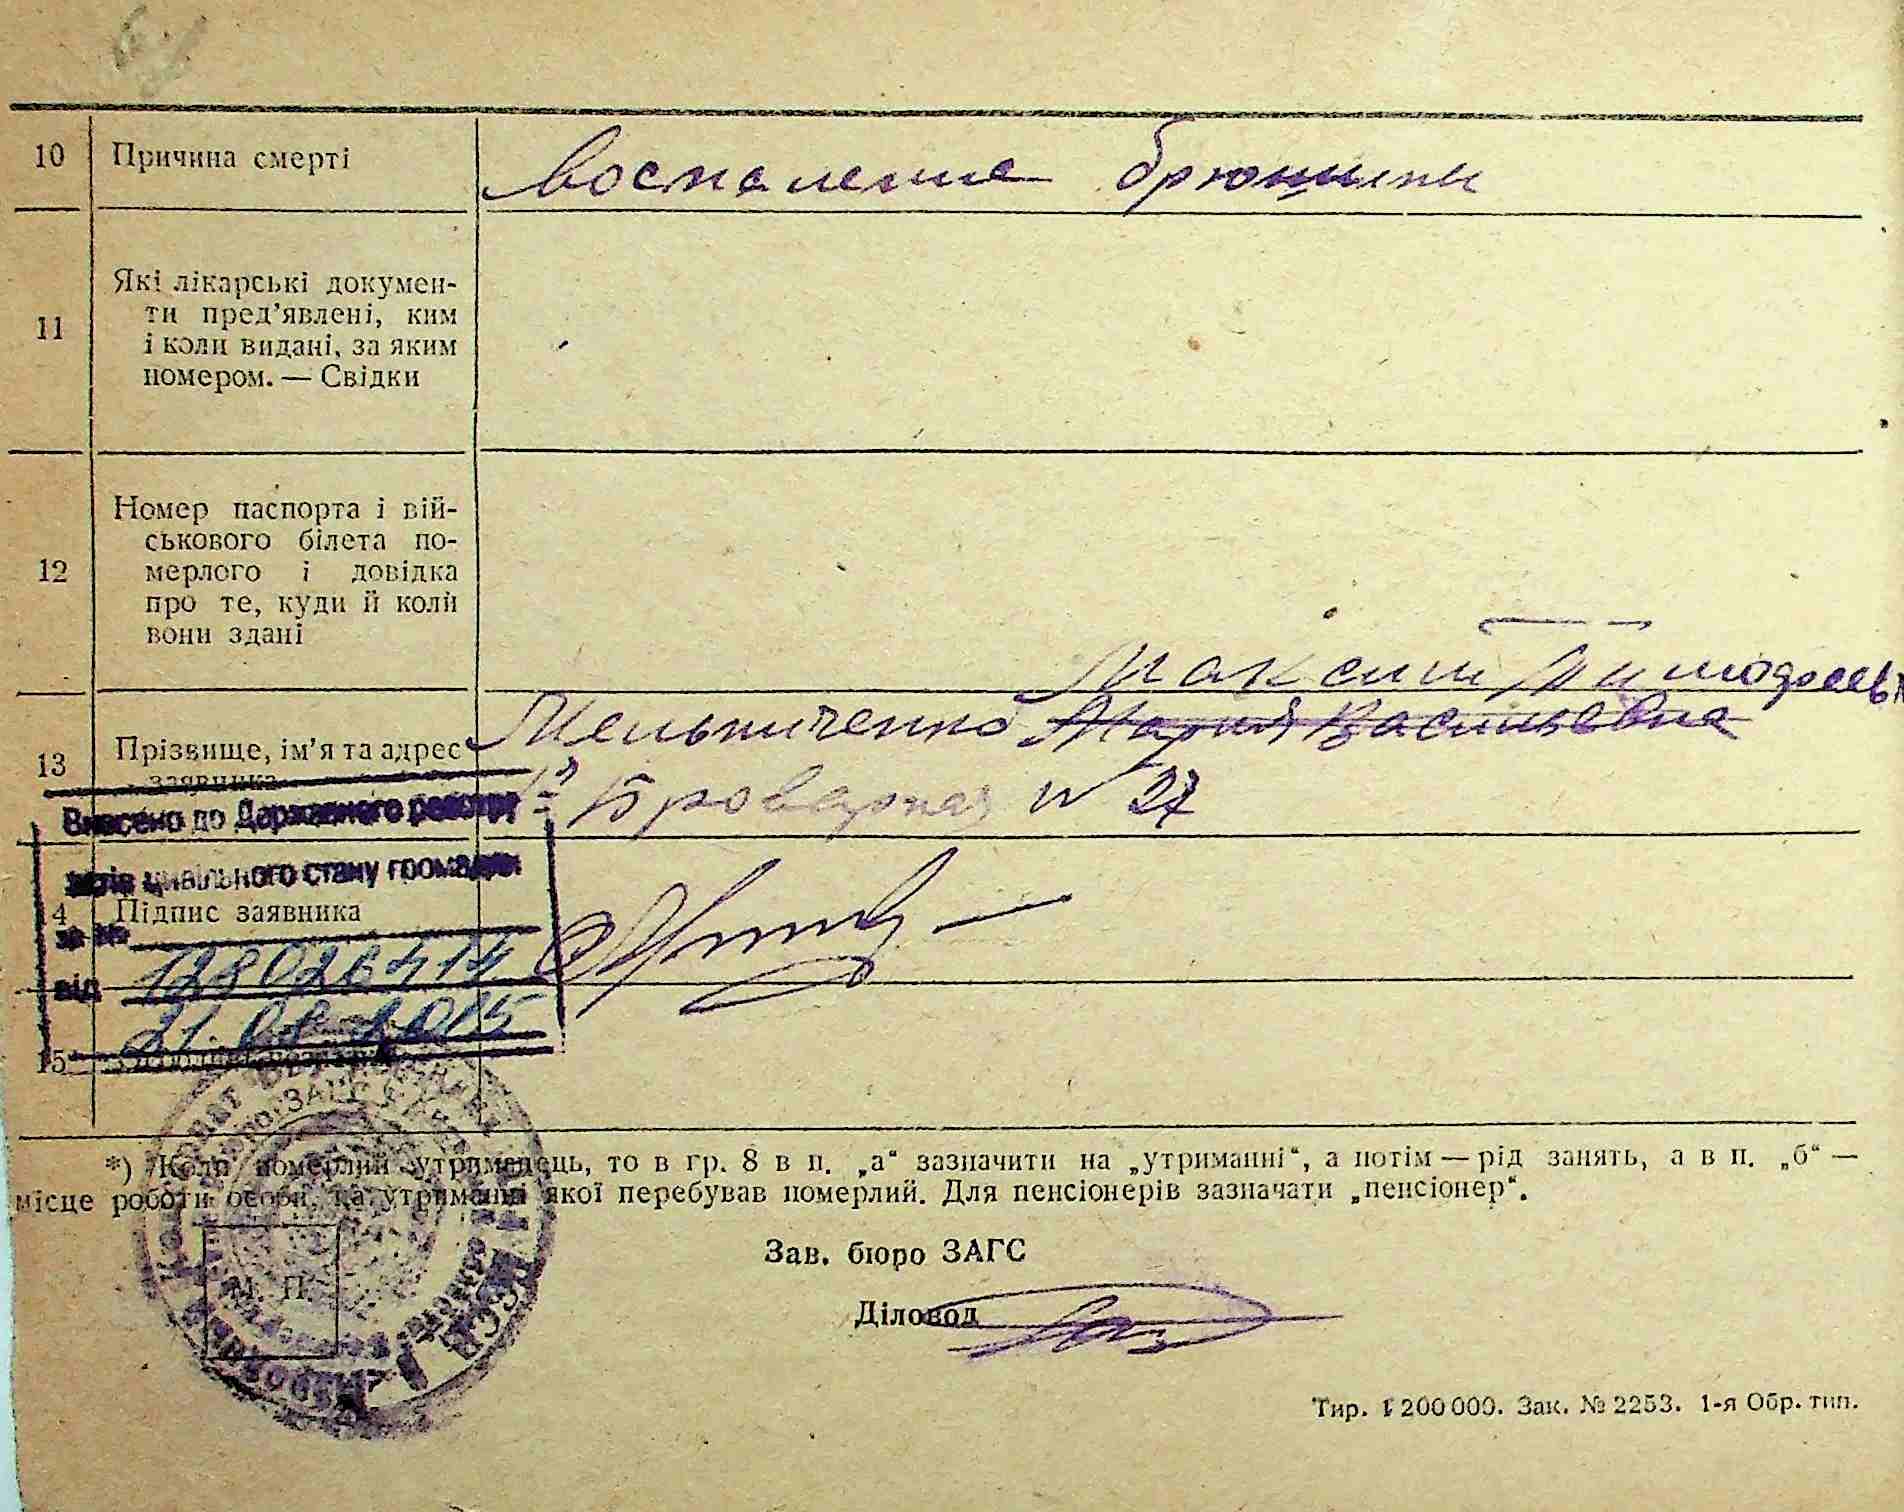 10 Причина смерті воспаление брюшины
11 Які лікарські докумен-
ти пред’явлені, ким
і коли видані, за яким
номером. — Свідки
12 Номер паспорта і вій-
ськового білета по-
мерлого і довідка
про те, куди й коли
вони здані
Максим Тимофеев
13 Прізвище, ім’я та адрес Мельниченко Мария Васильевна
заявника
Броварная № 27
Внесено до Державного реєстру
актів цивільного стану громадян
14 Підпис заявника
за №
128026414
від
21.08.2015
15
*) Коли померлий утриманець, то в гр. 8 в п. „а“ зазначити на „утриманні“, а потім — рід занять, а в п. „б“ —
місце роботи особи, на утриманні якої перебував померлий. Для пенсіонерів зазначати „пенсіонер“.
Зав. бюро ЗАГС
М. П.
Діловод
Тир. 1 200 000. Зак. № 2253. 1-я Обр. тип.